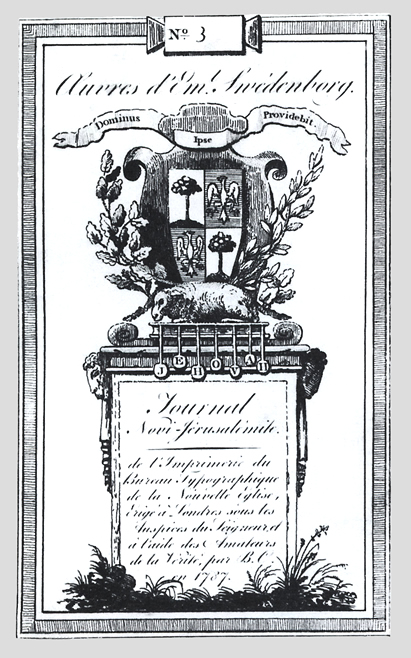 No. 3
Œuvres d'Em. Swédenborg.
Dominus Ipse Providebit.
JEHOVAH
Journal
Novi-Jérusalémite.
de l'Imprimerie du
Bureau Typographique
de la Nouvelle Eglise,
érigé à Londres sous les
Auspices du Seigneur, et
à l'aide des Amateurs
de la Vérité, par B. C.
en 1787.